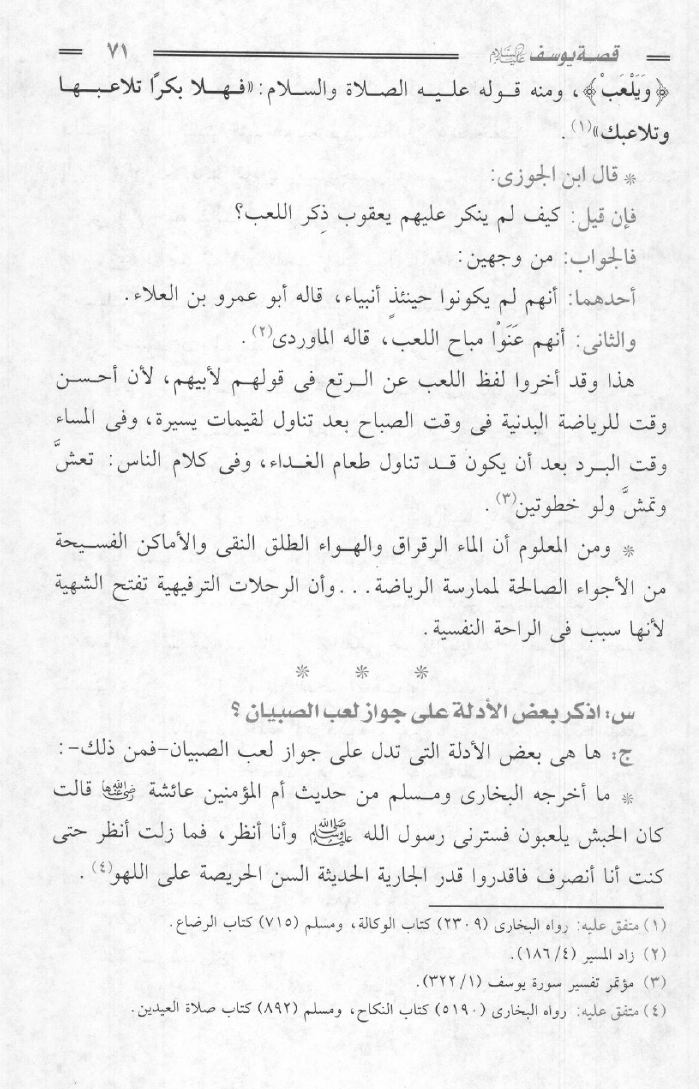 قصة يوسف عليه السلام ٧١
﴿وَيَلْعَبْ﴾، ومنه قوله عليه الصلاة والسلام: «فهلا بكرًا تلاعبها
وتلاعبك»(١).
* قال ابن الجوزى:
فإن قيل: كيف لم ينكر عليهم يعقوب ذِكر اللعب؟
فالجواب: من وجهين:
أحدهما: أنهم لم يكونوا حينئذٍ أنبياء، قاله أبو عمرو بن العلاء.
والثانى: أنهم عَنَوْا مباح اللعب، قاله الماوردى(٢).
هذا وقد أخروا لفظ اللعب عن الرتع فى قولهم لأبيهم، لأن أحسن
وقت للرياضة البدنية فى وقت الصباح بعد تناول لقيمات يسيرة، وفى المساء
وقت البرد بعد أن يكون قد تناول طعام الغداء، وفى كلام الناس: تعشَّ
وتمشَّ ولو خطوتين(٣).
* ومن المعلوم أن الماء الرقراق والهواء الطلق النقى والأماكن الفسيحة
من الأجواء الصالحة لممارسة الرياضة... وأن الرحلات الترفيهية تفتح الشهية
لأنها سبب فى الراحة النفسية.
* * *
س: اذكر بعض الأدلة على جواز لعب الصبيان؟
ج: ها هى بعض الأدلة التى تدل على جواز لعب الصبيان-فمن ذلك-:
* ما أخرجه البخارى ومسلم من حديث أم المؤمنين عائشة رضي الله عنها قالت
كان الحبش يلعبون فسترنى رسول الله ﷺ وأنا أنظر، فما زلت أنظر حتى
كنت أنا أنصرف فاقدروا قدر الجارية الحديثة السن الحريصة على اللهو(٤).
(١) متفق عليه: رواه البخارى (٢٣٠٩) كتاب الوكالة، ومسلم (٧١٥) كتاب الرضاع.
(٢) زاد المسير (٤/ ١٨٦).
(٣) مؤتمر تفسير سورة يوسف (١/ ٣٢٢).
(٤) متفق عليه: رواه البخارى (٥١٩٠) كتاب النكاح، ومسلم (٨٩٢) كتاب صلاة العيدين.